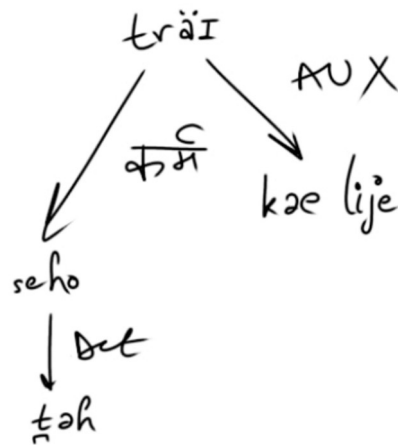 träɪ
AUX
कर्म
kəe lije
seho
Det
t̪əh